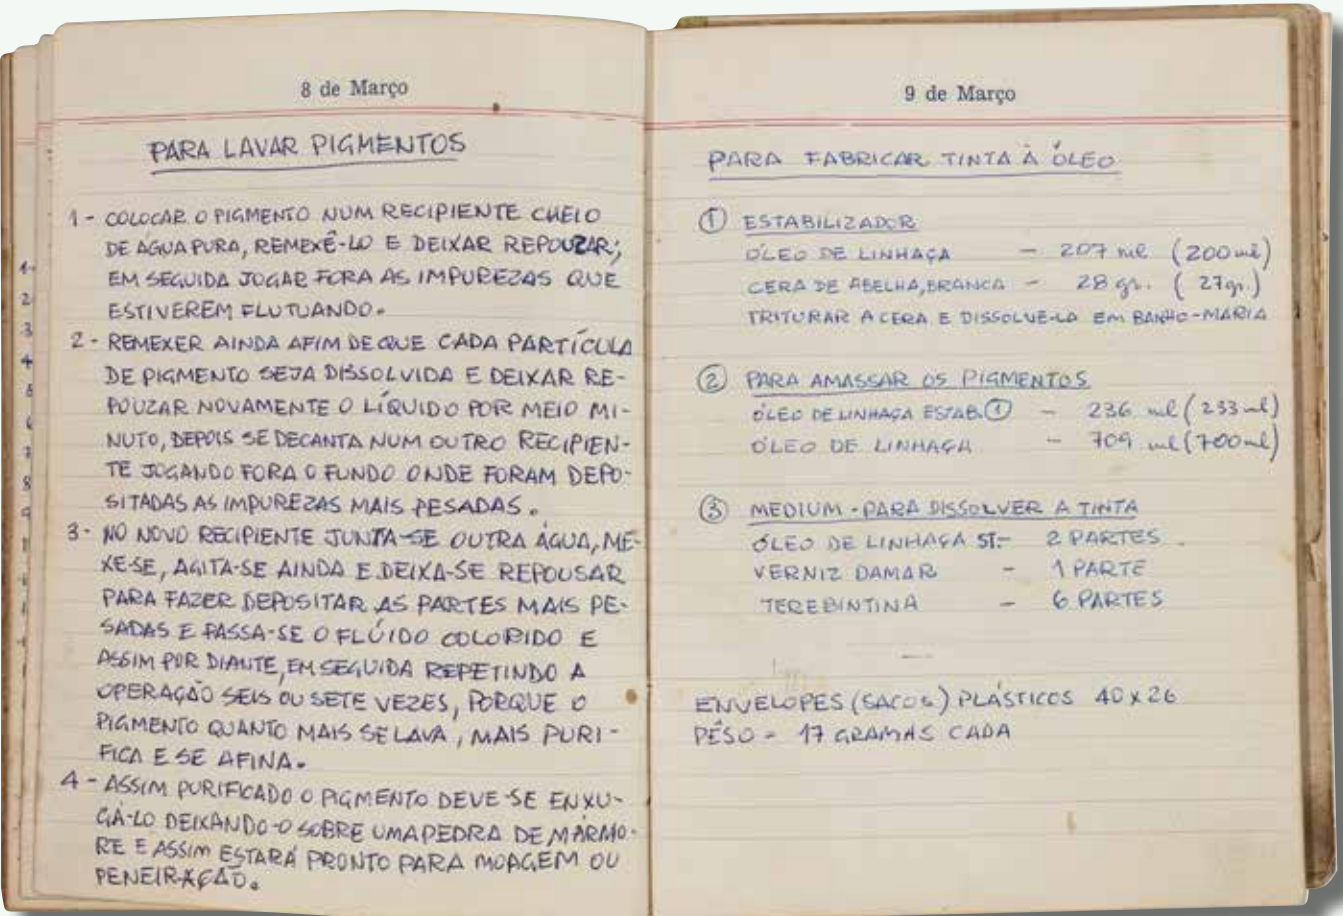 8 de Março
PARA LAVAR PIGMENTOS
1 - COLOCAR O PIGMENTO NUM RECIPIENTE CHEIO
DE ÁGUA PURA, REMEXÊ-LO E DEIXAR REPOUZAR;
EM SEGUIDA JOGAR FORA AS IMPUREZAS QUE
ESTIVEREM FLUTUANDO.
2 - REMEXER AINDA AFIM DE QUE CADA PARTÍCULA
DE PIGMENTO SEJA DISSOLVIDA E DEIXAR RE-
POUZAR NOVAMENTE O LÍQUIDO POR MEIO MI-
NUTO, DEPOIS SE DECANTA NUM OUTRO RECIPIEN-
TE JOGANDO FORA O FUNDO ONDE FORAM DEPO-
SITADAS AS IMPUREZAS MAIS PESADAS.
3 - NO NOVO RECIPIENTE JUNTA-SE OUTRA ÁGUA, ME-
XE-SE, AGITA-SE AINDA E DEIXA-SE REPOUSAR
PARA FAZER DEPOSITAR AS PARTES MAIS PE-
SADAS E PASSA-SE O FLÚIDO COLORIDO E
ASSIM POR DIANTE, EM SEGUIDA REPETINDO A
OPERAÇÃO SEIS OU SETE VEZES, PORQUE O
PIGMENTO QUANTO MAIS SE LAVA, MAIS PURI-
FICA E SE AFINA.
4 - ASSIM PURIFICADO O PIGMENTO DEVE-SE ENXU-
GÁ-LO DEIXANDO-O SOBRE UMA PEDRA DE MÁRMO-
RE E ASSIM ESTARÁ PRONTO PARA MOAGEM OU
PENEIRAÇÃO.
9 de Março
PARA FABRICAR TINTA À ÓLEO
① ESTABILIZADOR
ÓLEO DE LINHAÇA - 207 ml (200 ml)
CERA DE ABELHA, BRANCA - 28 gr. (27 gr.)
TRITURAR A CERA E DISSOLVE-LA EM BANHO-MARIA
② PARA AMASSAR OS PIGMENTOS
ÓLEO DE LINHAÇA ESTAB. ① - 236 ml (233 ml)
ÓLEO DE LINHAÇA - 709 ml (700 ml)
③ MEDIUM - PARA DISSOLVER A TINTA
ÓLEO DE LINHAÇA ST. - 2 PARTES
VERNIZ DAMAR - 1 PARTE
TEREBINTINA - 6 PARTES
ENVELOPES (SACOS) PLÁSTICOS 40 x 26
PÊSO = 17 GRAMAS CADA